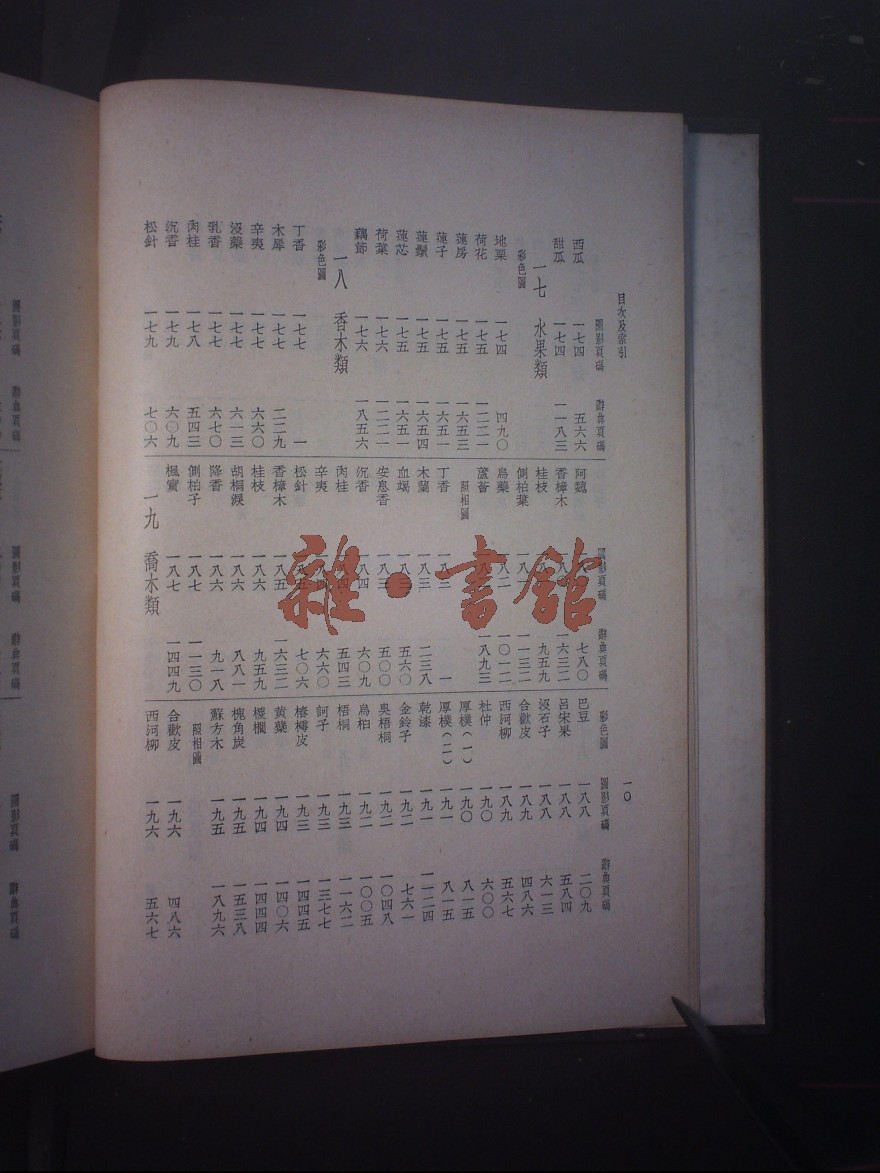 目次及索引
一〇
圖影頁碼 辭典頁碼
西瓜 一七四 五六六
甜瓜 一七四 一一八三
一七 水果類
彩色圖
地栗 一七四 四九〇
荷花 一七五 一二二一
蓮房 一七五 一六五三
蓮子 一七五
蓮鬚 一七五 一六五四
蓮芯 一七五 一六五一
荷葉 一七六 一二二一
藕節 一七六 一八五六
一八 香木類
彩色圖
丁香 一七七 一
木犀 一七七 二二九
辛夷 一七七 六六〇
沒藥 一七七 六一三
乳香 一七七 六七〇
肉桂 一七八 五四三
沉香 一七九 六〇九
松針 一七九 七〇六
圖影頁碼 辭典頁碼
阿魏 七八〇
香樟木 一六三二
桂枝 九五九
側柏葉 一一三二
烏藥 一〇一二
蘆薈 一八九三
照相圖
丁香 一八二 一
木蘭 一八三 二三八
血竭 一八三 五六〇
安息香 一八三 五〇〇
沉香 一八四 六〇九
肉桂 一八四 五四三
辛夷 一八四 六六〇
松針 一八五 七〇六
香樟木 一八五 一六三二
桂枝 一八六 九五九
胡桐淚 一八六 八八一
降香 一八六 九一八
側柏子 一八七 一一三〇
楓實 一八七 一四四九
一九 喬木類
圖影頁碼 辭典頁碼
彩色圖
巴豆 一八八 二〇九
呂宋果 一八八 五八四
沒石子 一八八 六一三
合歡皮 一八九 四八六
西河柳 一八九 五六七
杜仲 一九〇 六〇〇
厚樸(一) 一九〇 八一五
厚樸(二) 一九一 八一五
乾漆 一九一 一一二四
金鈴子 一九二 七六一
臭梧桐 一九二 一〇四八
烏桕 一九二 一〇〇五
梧桐 一九三 一一六二
訶子 一九三 一三七七
椿樗皮 一九三 一四四五
黃蘗 一九四 一四〇六
椶櫚 一九四 一四四四
槐角炭 一九五 一五三八
蘇方木 一九五 一八九六
照相圖
合歡皮 一九六 四八六
西河柳 一九六 五六七
雜·書館